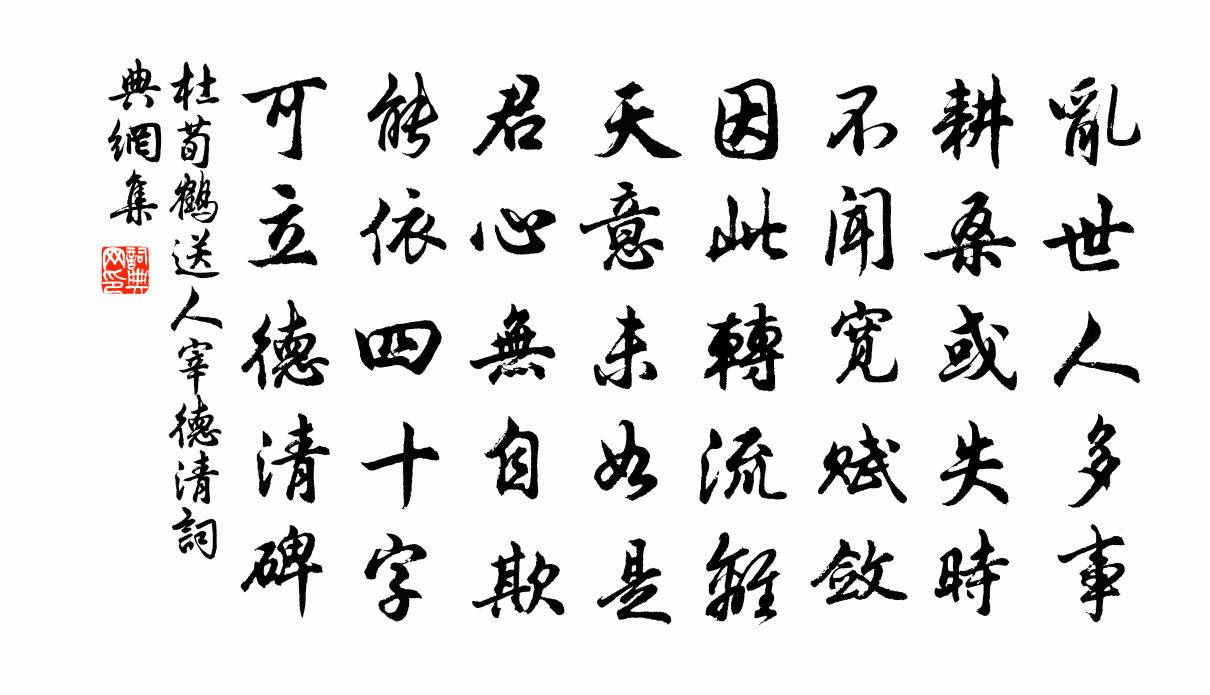 亂世人多事
耕桑或失時
不聞寬賦斂
因此轉流離
天意未如是
君心無自欺
能依四十字
可立德清碑
杜荀鶴送人宰德清詞
典網集
詞典網印